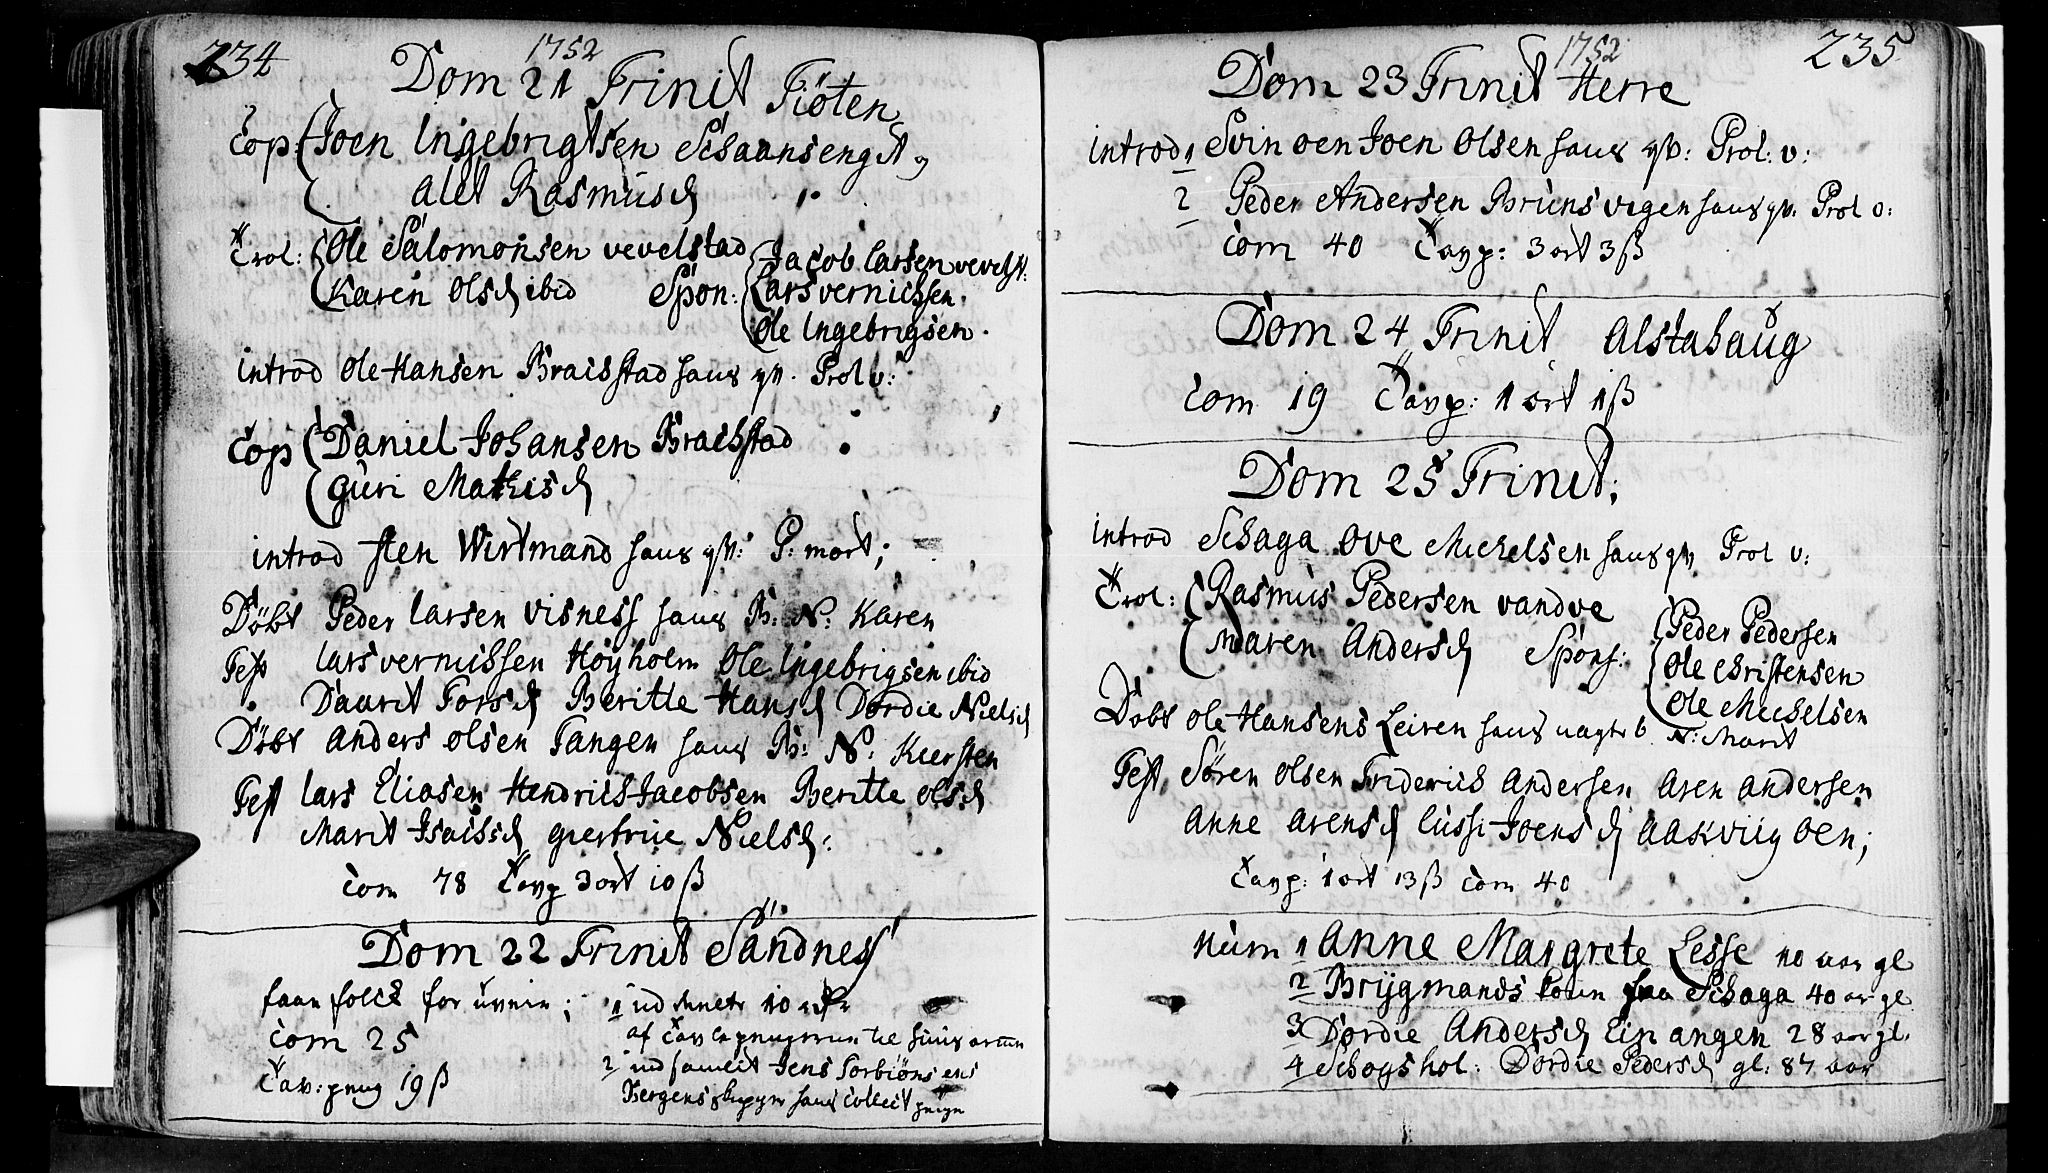 234
1752
Dom 21 Trinit Tiöten
Cop: Joen Ingebrigtsen Schaansengit og
Alet Rasmusd
Trol: Ole Salomonsen vevelstad Jacob Larsen vevelst:
Karen Olsd ibid Spon: Lars vernichsen.
Ole Ingebrigsen.
introd Ole Hansen Braichstad haus qv. Prol v:
Cop Daniel Johansen Braichstad
Guri Mathisd
introd sten Wirtmand haus qv: P: mort;
Döbt Peder Larsen Visness haus B: N: Karen
Test Lars vernichsen Höyholm Ole Ingebrigsen ibid
Daarit Torsd Beritte Hansd Dordie Nielsd
Döbt Anders Olsen Tangen haus B: N: Kiersten
Test Lars Eliasen Hendrich Jacobsen Beritte Olsd
Marit Isachsd giertrue Nielsd:
Com 78 Tavp 3 ort 10 ß
Dom 22 Trinit Sandnes
faae folch for uveir;
Com 25
Tav: peng 19 ß
1 ud
af Tavlepengerne til
2 ud Jens Torbiönsens
Bergens haus Collect
235
1752
Dom 23 Trinit Herre
introd 1 Svinoen Joen Olsen haus qv: Prol: v:
2 Peder Andersen Brunsvigen haus qv. Prol v:
Com 40 Tavp: 3 ort 3 ß
Dom 24 Trinit Alstahaug
Com 19 Tavp: 1 ort 1 ß
Dom 25 Trinit;
introd Schaga Ove Michelsen haus qv Prol v:
Trol: Rasmus Pedersen vandve Peder Pedersen
Maren Andersd Spons: Ole Christensen
Ole Michelsen
Dobt Ole Hansens Leiren haus uagte b. N: Marit
Test Sören Olsen Friderich Andersen Aren Andersen
Anne Arensd Lussi Joensd Aakviig Oen;
Tavp: 1 ort 13 ß Com 40
Num 1 Anne Margrete Lesse 10 aar gl
2 Brygmands Kone fra Schaga 40 ar gl
3 Dordie Andersd Einangen 28 aar gl.
4 Schogshol: Dordie Pedersd gl: 87 aar